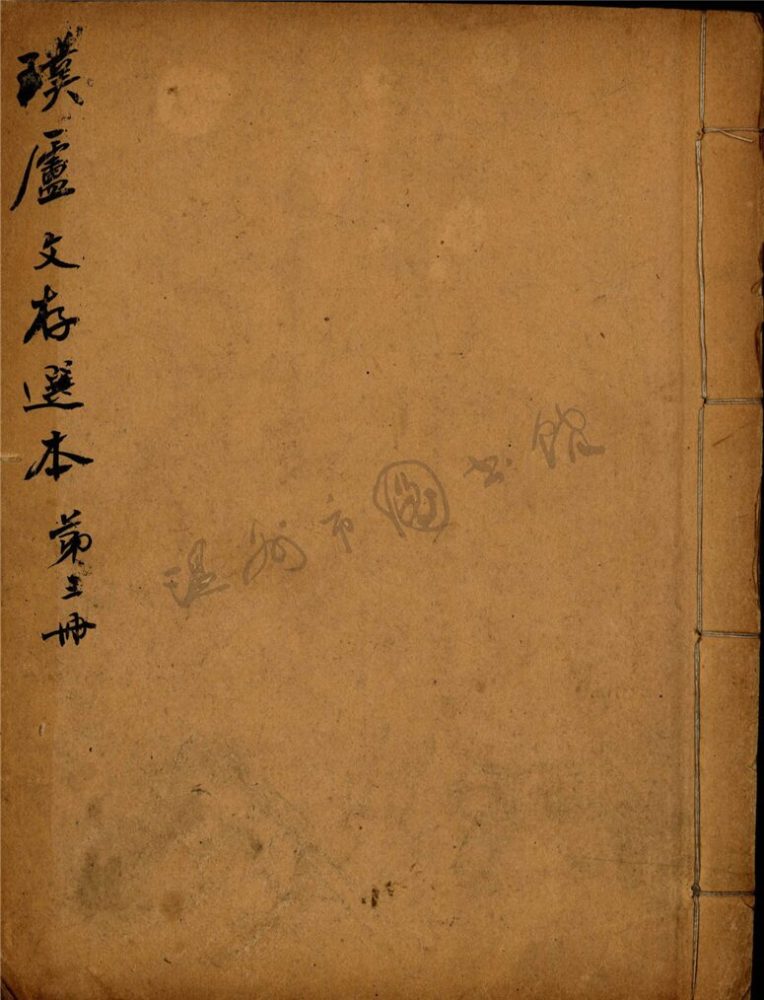 璞廬文存選本 第三冊
温州市圖书馆